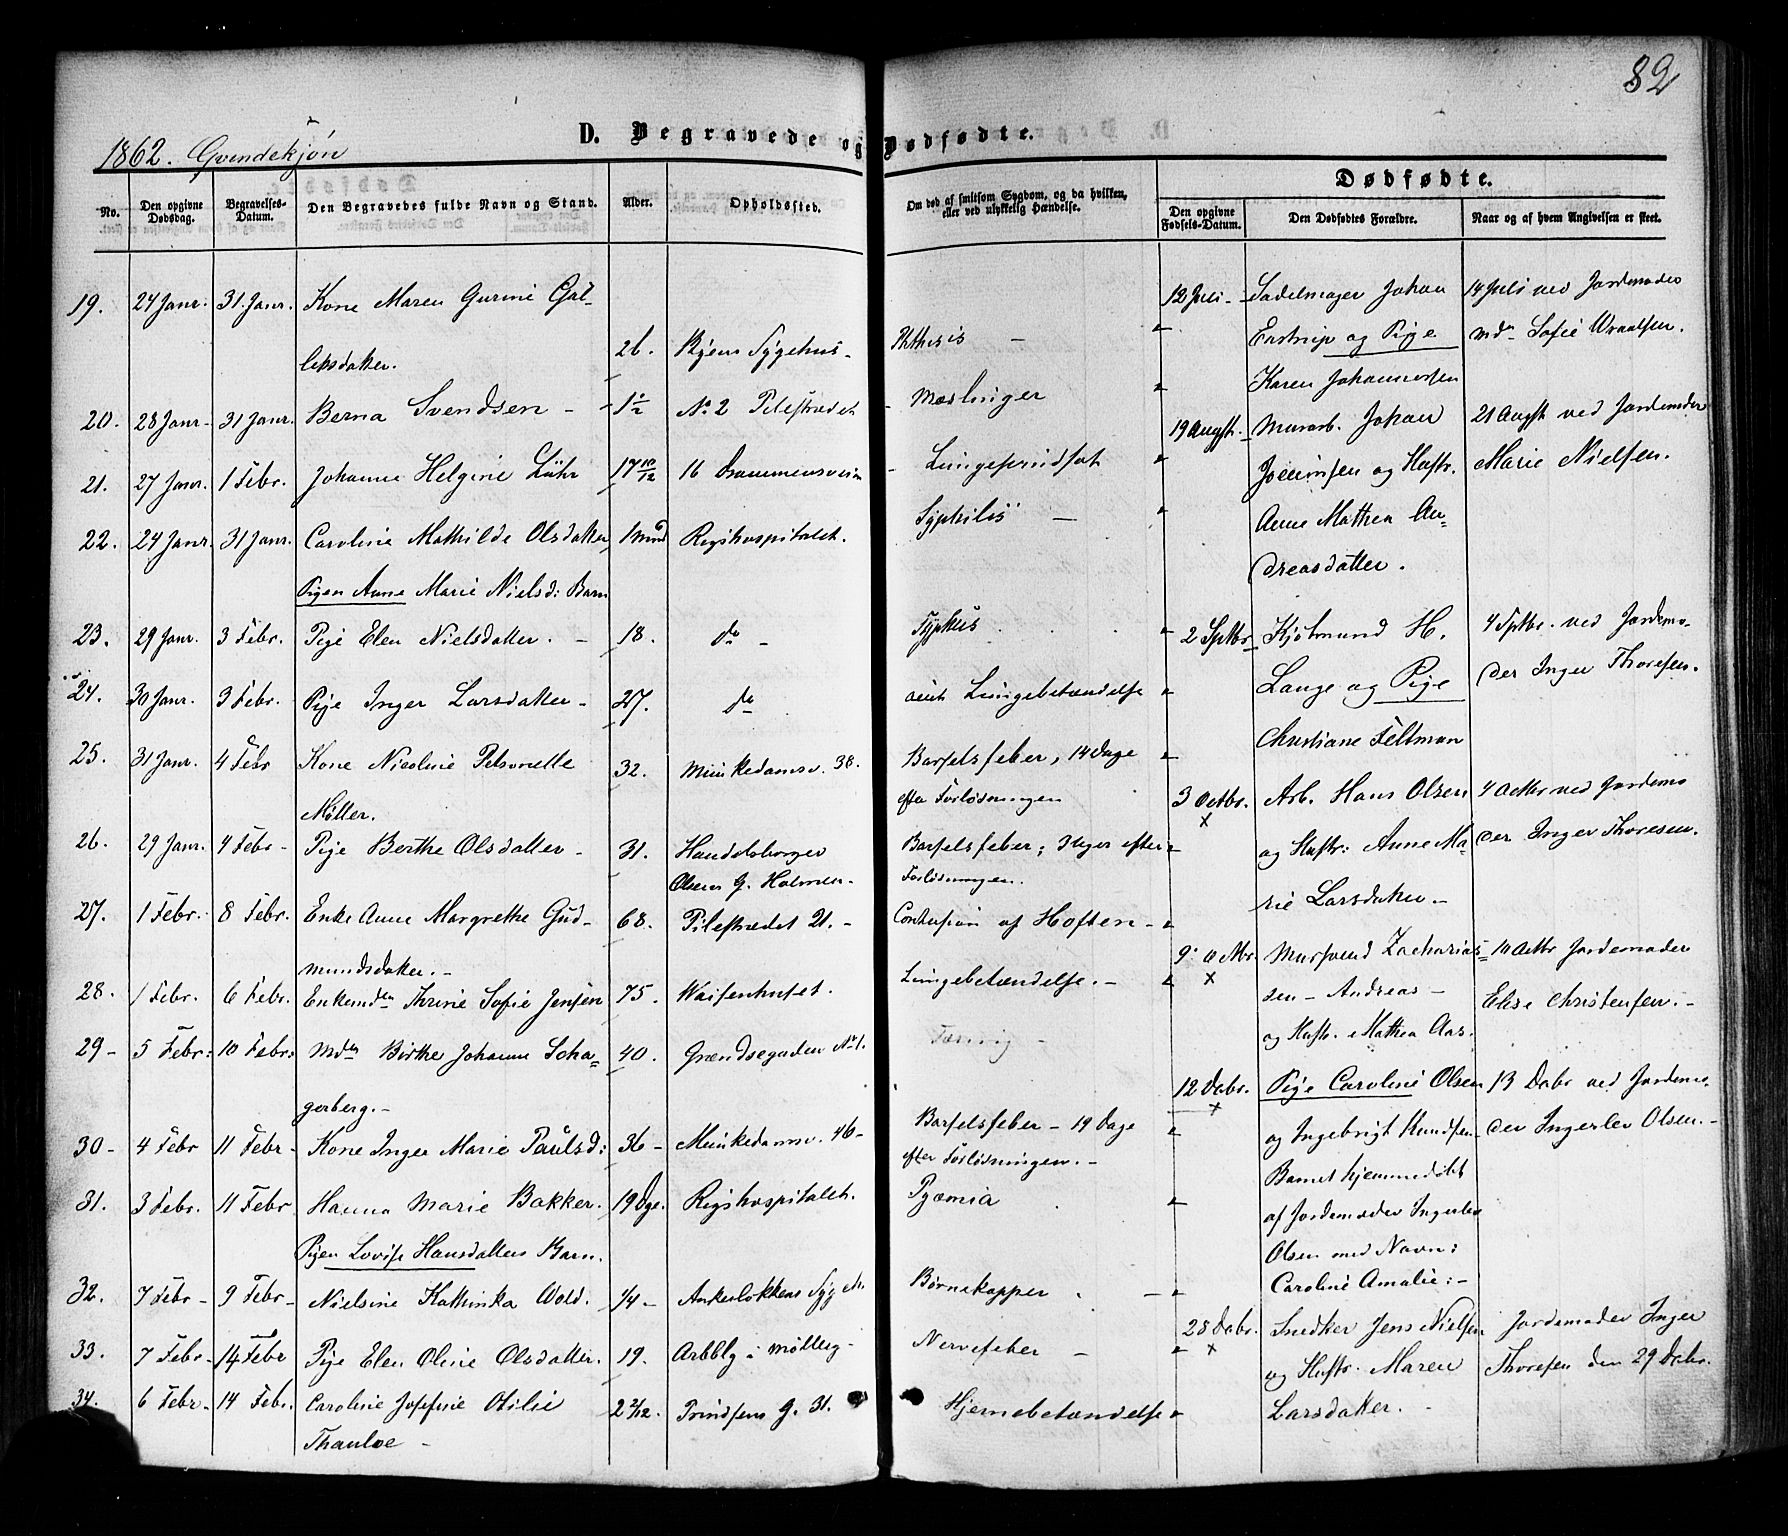 82
1862. Qvindekjøn
D. Begravede og Dødfødte.
Dødfødte.
No.
Den opgivne Dødsdag.
Begravelses-Datum.
Den Begravedes fulde Navn og Stand.
Alder.
Opholdssted.
Om død af smitsom Sygdom, og da hvilken, eller ved ulykkelig Hændelse.
Den opgivne Fødsels-Datum.
Den Dødfødtes Forældre.
Naar og af hvem Angivelsen er skeet.
19. 24 Janr. 31. Janr. Kone Maren Gurine Gul-
leksdatter. 26. Byens Sygehus - Phthisis -
20. 28 Janr - 31 Janr. Berna Svendsen - No 2 Pilestrædet - Meslinger
21. 27 Janr. 1 Febr. Johanne Helgine Lühr 17 10/12 16 Drammensveien - Lungeprindsot
22. 24 Janr. 31 Janr. Caroline Mathilde Olsdatter 1 Mnd Rigshospitalet. Syphilis -
Pigen Anne Marie Nielsd: Barn
23. 29 Janr. 3 Febr. Pige Elen Nielsdatter. - 18. do - Typhus
24. 30 Janr. 3 Febr. Pige Inger Larsdatter - 27. do acut Lungebetændelse
25. 31 Janr. 4 Febr Kone Nicoline Petronelle 32. Munkedamsv. 38. Barselsfeber, 14 Dage
Møller. efter Forløsningen
26. 29 Janr. 4 Febr - Pige Berthe Olsdatter - 31. Handelsborger Barselsfeber; 3 Uger efter
Olsens G. Holmen - Forløsningen.
27. 1 Febr. 8 Febr. Enke Anne Margrethe Gud- 68. Pilestrædet 21. - Contusion af Hoften -
mundsdatter. -
28. 1 Febr. 6 Febr. Enkemdm Thrine Sofie Jensen 75. Waisenhuset. Lungebetændelse. -
29 - 5 Febr: 10 Febr: Mdm Birthe Johanne Scha= 40. Grændsegaden No 1. Tæring -
gerberg. -
30 - 4 Febr 11 Febr - Kone Inger Marie Paulsd: 36 - Munkedamsv. 46 - Barselsfeber - 19 Dage
efter Forløsningen. -
31. 3 Febr. 11 Febr Hanna Marie Bakker. 19 Dge. Rigshospitalet. Pyæmia
Pigen Lovise Hansdatters Barn.
32. 7 Febr - 9 Febr - Nielsine Kathinka Wold. 1/4 - Ankerløkkens Sygeh. Børnekopper
33. 7 Febr - 14 Febr Pige Elen Oline Olsdatter. 19. Arbblg i Møllerg - Nervefeber -
34. 6 Febr - 14 Febr. Caroline Josefine Otilie 2 2/12. Prindsens G. 31. Hjernebetændelse
Thaulue -
12 Juli - Sadelmager Johan 14 Juli ved Jordemoder
Enstrup og Pige mdm Sofie Wraalsen.
Karen Johannessen
19 Augst. Murarb. Johan 21 Augst ved Jordemoder
og Hustr. Marie Nielsen.
Anne Mathea An-
dreasdatter.
2 Sptbr Kjøbmand H. 4 Sptbr. ved Jordemo-
Lange og Pige der Inger Thoresen.
Christiane Feltman
3 Octbr. Arb. Hans Olsen 4 Octbr ved Jordemo
x og Hustr: Anne Ma- der Inger Thoresen.
rie Larsdatter -
9. Octbr. Mursvend Zacharias= 10 Octbr Jordemoder
x sen - Andreas - Elise Christensen. -
og Hustr. Mathea Aas.
12 Decbr. Pige Caroline Olsen 13 Decbr ved Jordemo-
x og Ingebrigt Knudsen - der Ingerlev Olsen. -
Barnet hjemmedøbt
af Jordemoder Ingerlev
Olsen med Navn:
Caroline Amalie: -
28 Decbr. Snedker Jens Nielsen Jordemoder Inger
x og Hustr. Maren Thoresen den 29 Decbr.
Larsdatter. -